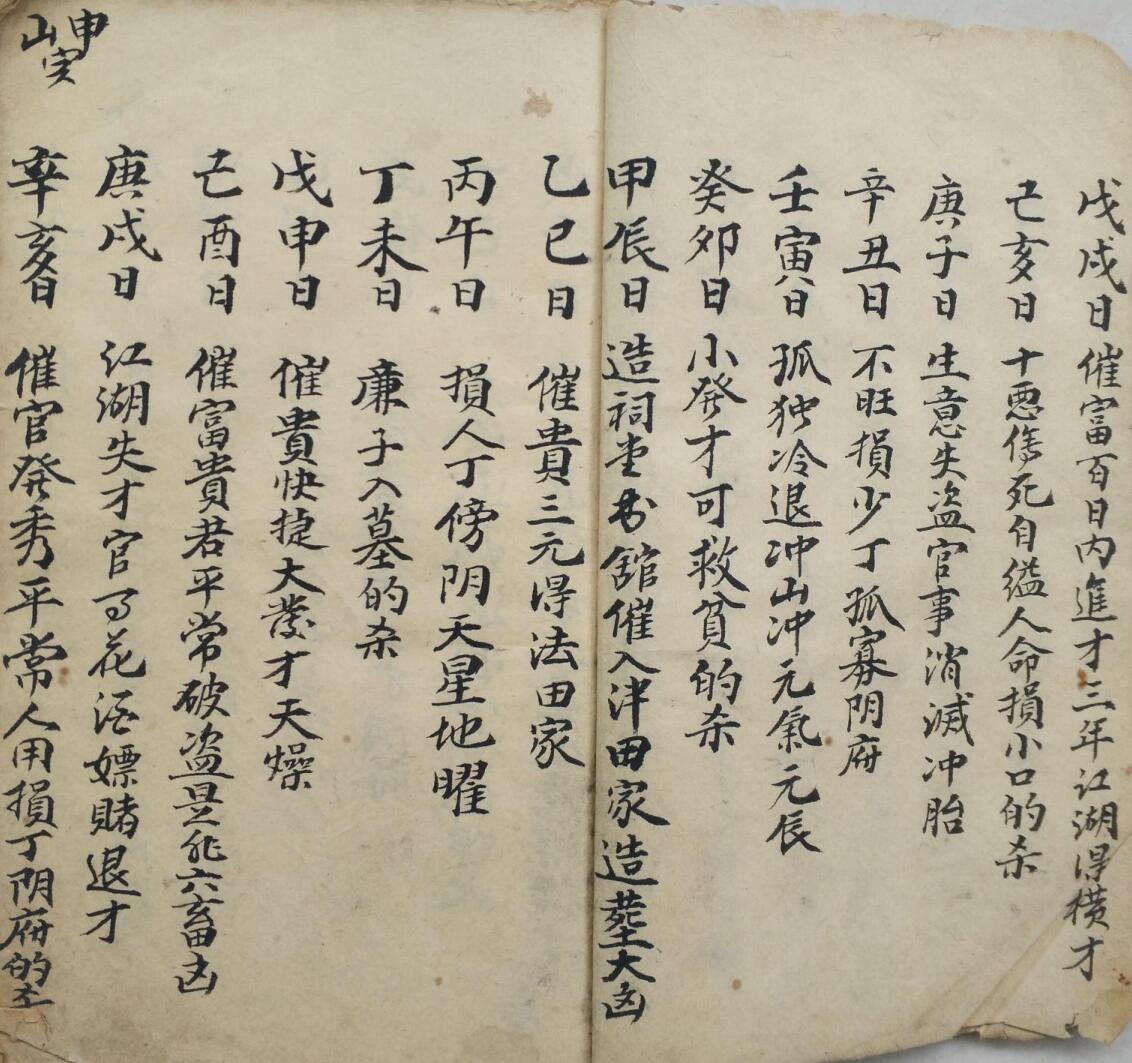 戊戌日 催富百日内進才三年江湖得横才
己亥日 十悪傷死自縊人命損小口的杀
庚子日 生意失盗官事消减冲胎
辛丑日 不旺損少丁孤寡阴府
壬寅日 孤独冷退冲山冲元氣元辰
癸卯日 小發才可救貧的杀
甲辰日 造祠堂书舘催入津田家造塟大凶
乙巳日 催貴三元得法田家
丙午日 損人丁傍阴天星地曜
丁未日 廉子入墓的杀
戊申日 催貴快捷大發才天燥
己酉日 催富貴若平常破盗是非六畜凶
庚戌日 江湖失才官司花酒嫖賭退才
辛亥日 催官發秀平常人用損丁阴府的
申山